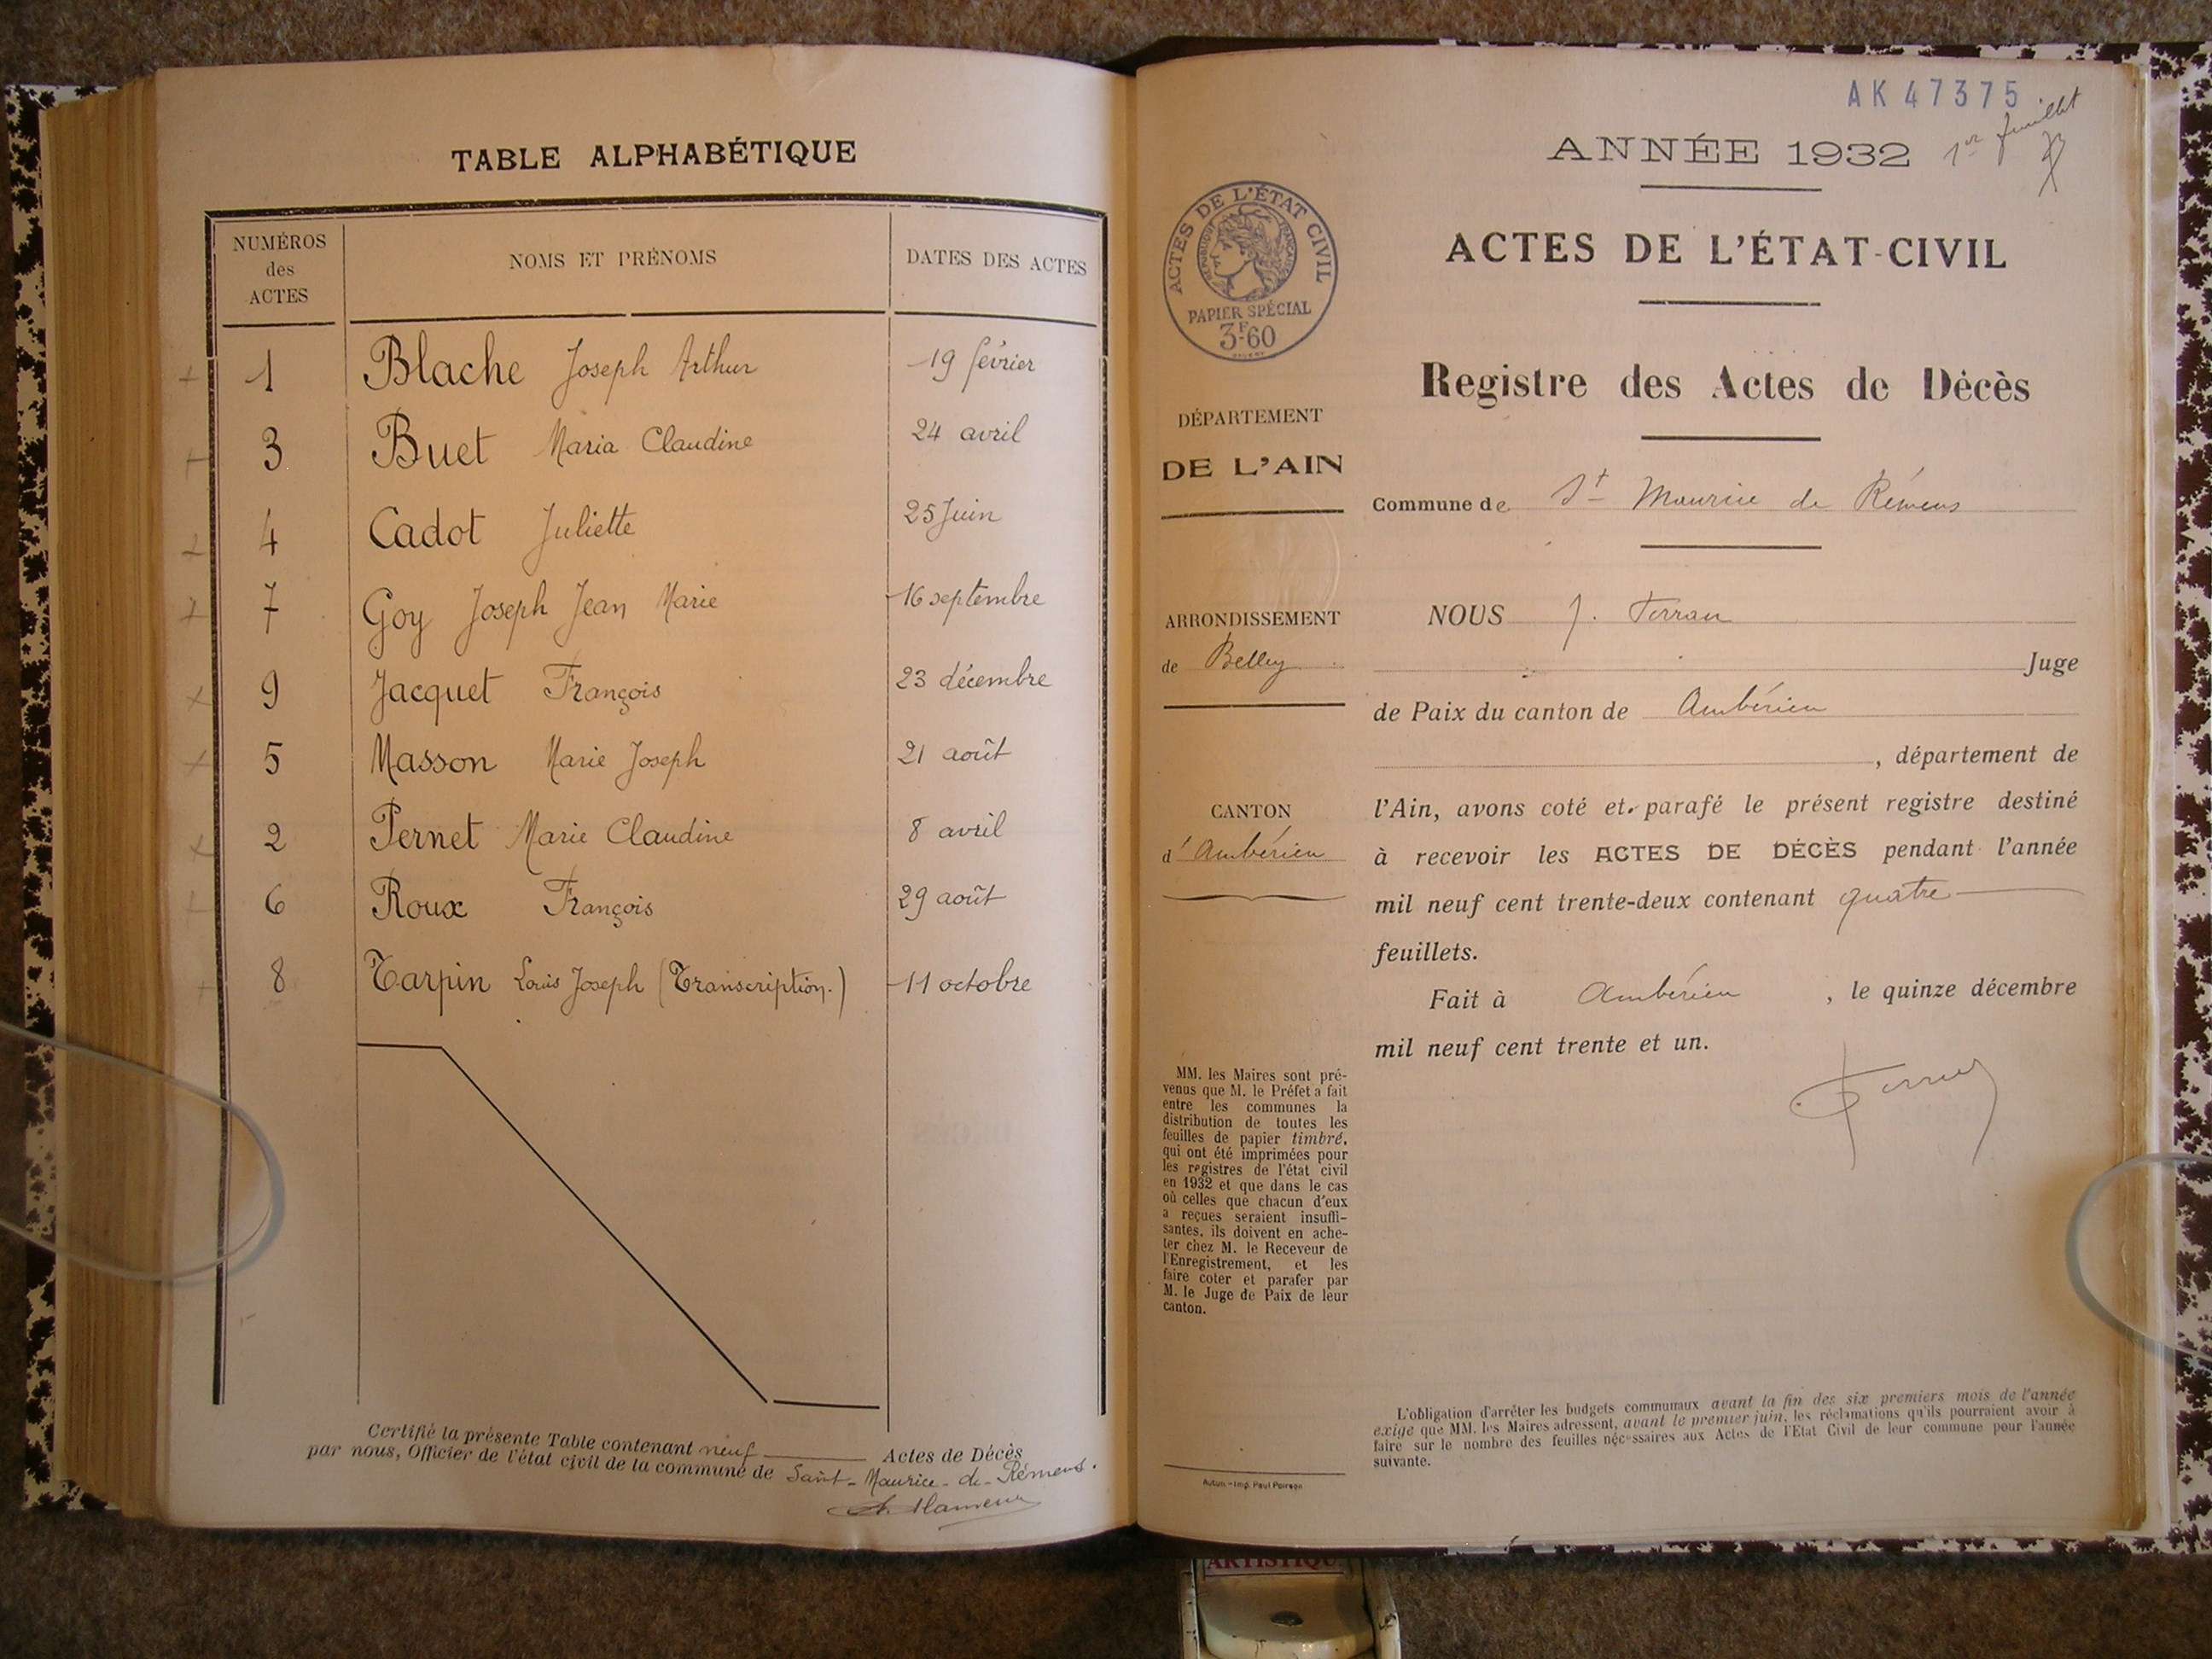 TABLE ALPHABÉTIQUE
NUMÉROS des ACTES
NOMS ET PRÉNOMS
DATES DES ACTES
1 Blache Joseph Arthur 19 février
3 Buet Maria Claudine 24 avril
4 Cadot Juliette 25 Juin
7 Goy Joseph Jean Marie 16 septembre
9 Jacquet François 23 décembre
5 Masson Marie Joseph 21 août
2 Pernet Marie Claudine 8 avril
6 Roux François 29 août
8 Tarpin Louis Joseph (Transcription.) 11 octobre
Certifié la présente Table contenant neuf Actes de Décès
par nous, Officier de l'état civil de la commune de Saint-Maurice-de-Rémens.
AK 47375
1er feuillet
ANNÉE 1932
ACTES DE L'ÉTAT-CIVIL
Registre des Actes de Décès
Commune de St Maurice de Rémens
NOUS J.
Juge
de Paix du canton de Ambérieu
, département de
l'Ain, avons coté et parafé le présent registre destiné
à recevoir les ACTES DE DÉCÈS pendant l'année
mil neuf cent trente-deux contenant quatre
feuillets.
Fait à Ambérieu, le quinze décembre
mil neuf cent trente et un.
ACTES DE L'ÉTAT CIVIL
RÉPUBLIQUE FRANÇAISE
PAPIER SPÉCIAL
3F60
DÉPARTEMENT
DE L'AIN
ARRONDISSEMENT
de Belley
CANTON
d'Ambérieu
MM. les Maires sont pré-
venus que M. le Préfet a fait
entre les communes la
distribution de toutes les
feuilles de papier timbré,
qui ont été imprimées pour
les registres de l'état civil
en 1932 et que dans le cas
où celles que chacun d'eux
a reçues seraient insuffi-
santes, ils doivent en ache-
ter chez M. le Receveur de
l'Enregistrement, et les
faire coter et parafer par
M. le Juge de Paix de leur
canton.
Autun - Imp. Paul Poirson
L'obligation d'arrêter les budgets communaux avant la fin des six premiers mois de l'année
exige que MM. les Maires adressent, avant le premier juin, les réclamations qu'ils pourraient avoir à
faire sur le nombre des feuilles nécessaires aux Actes de l'Etat Civil de leur commune pour l'année
suivante.
ARTISTIQU